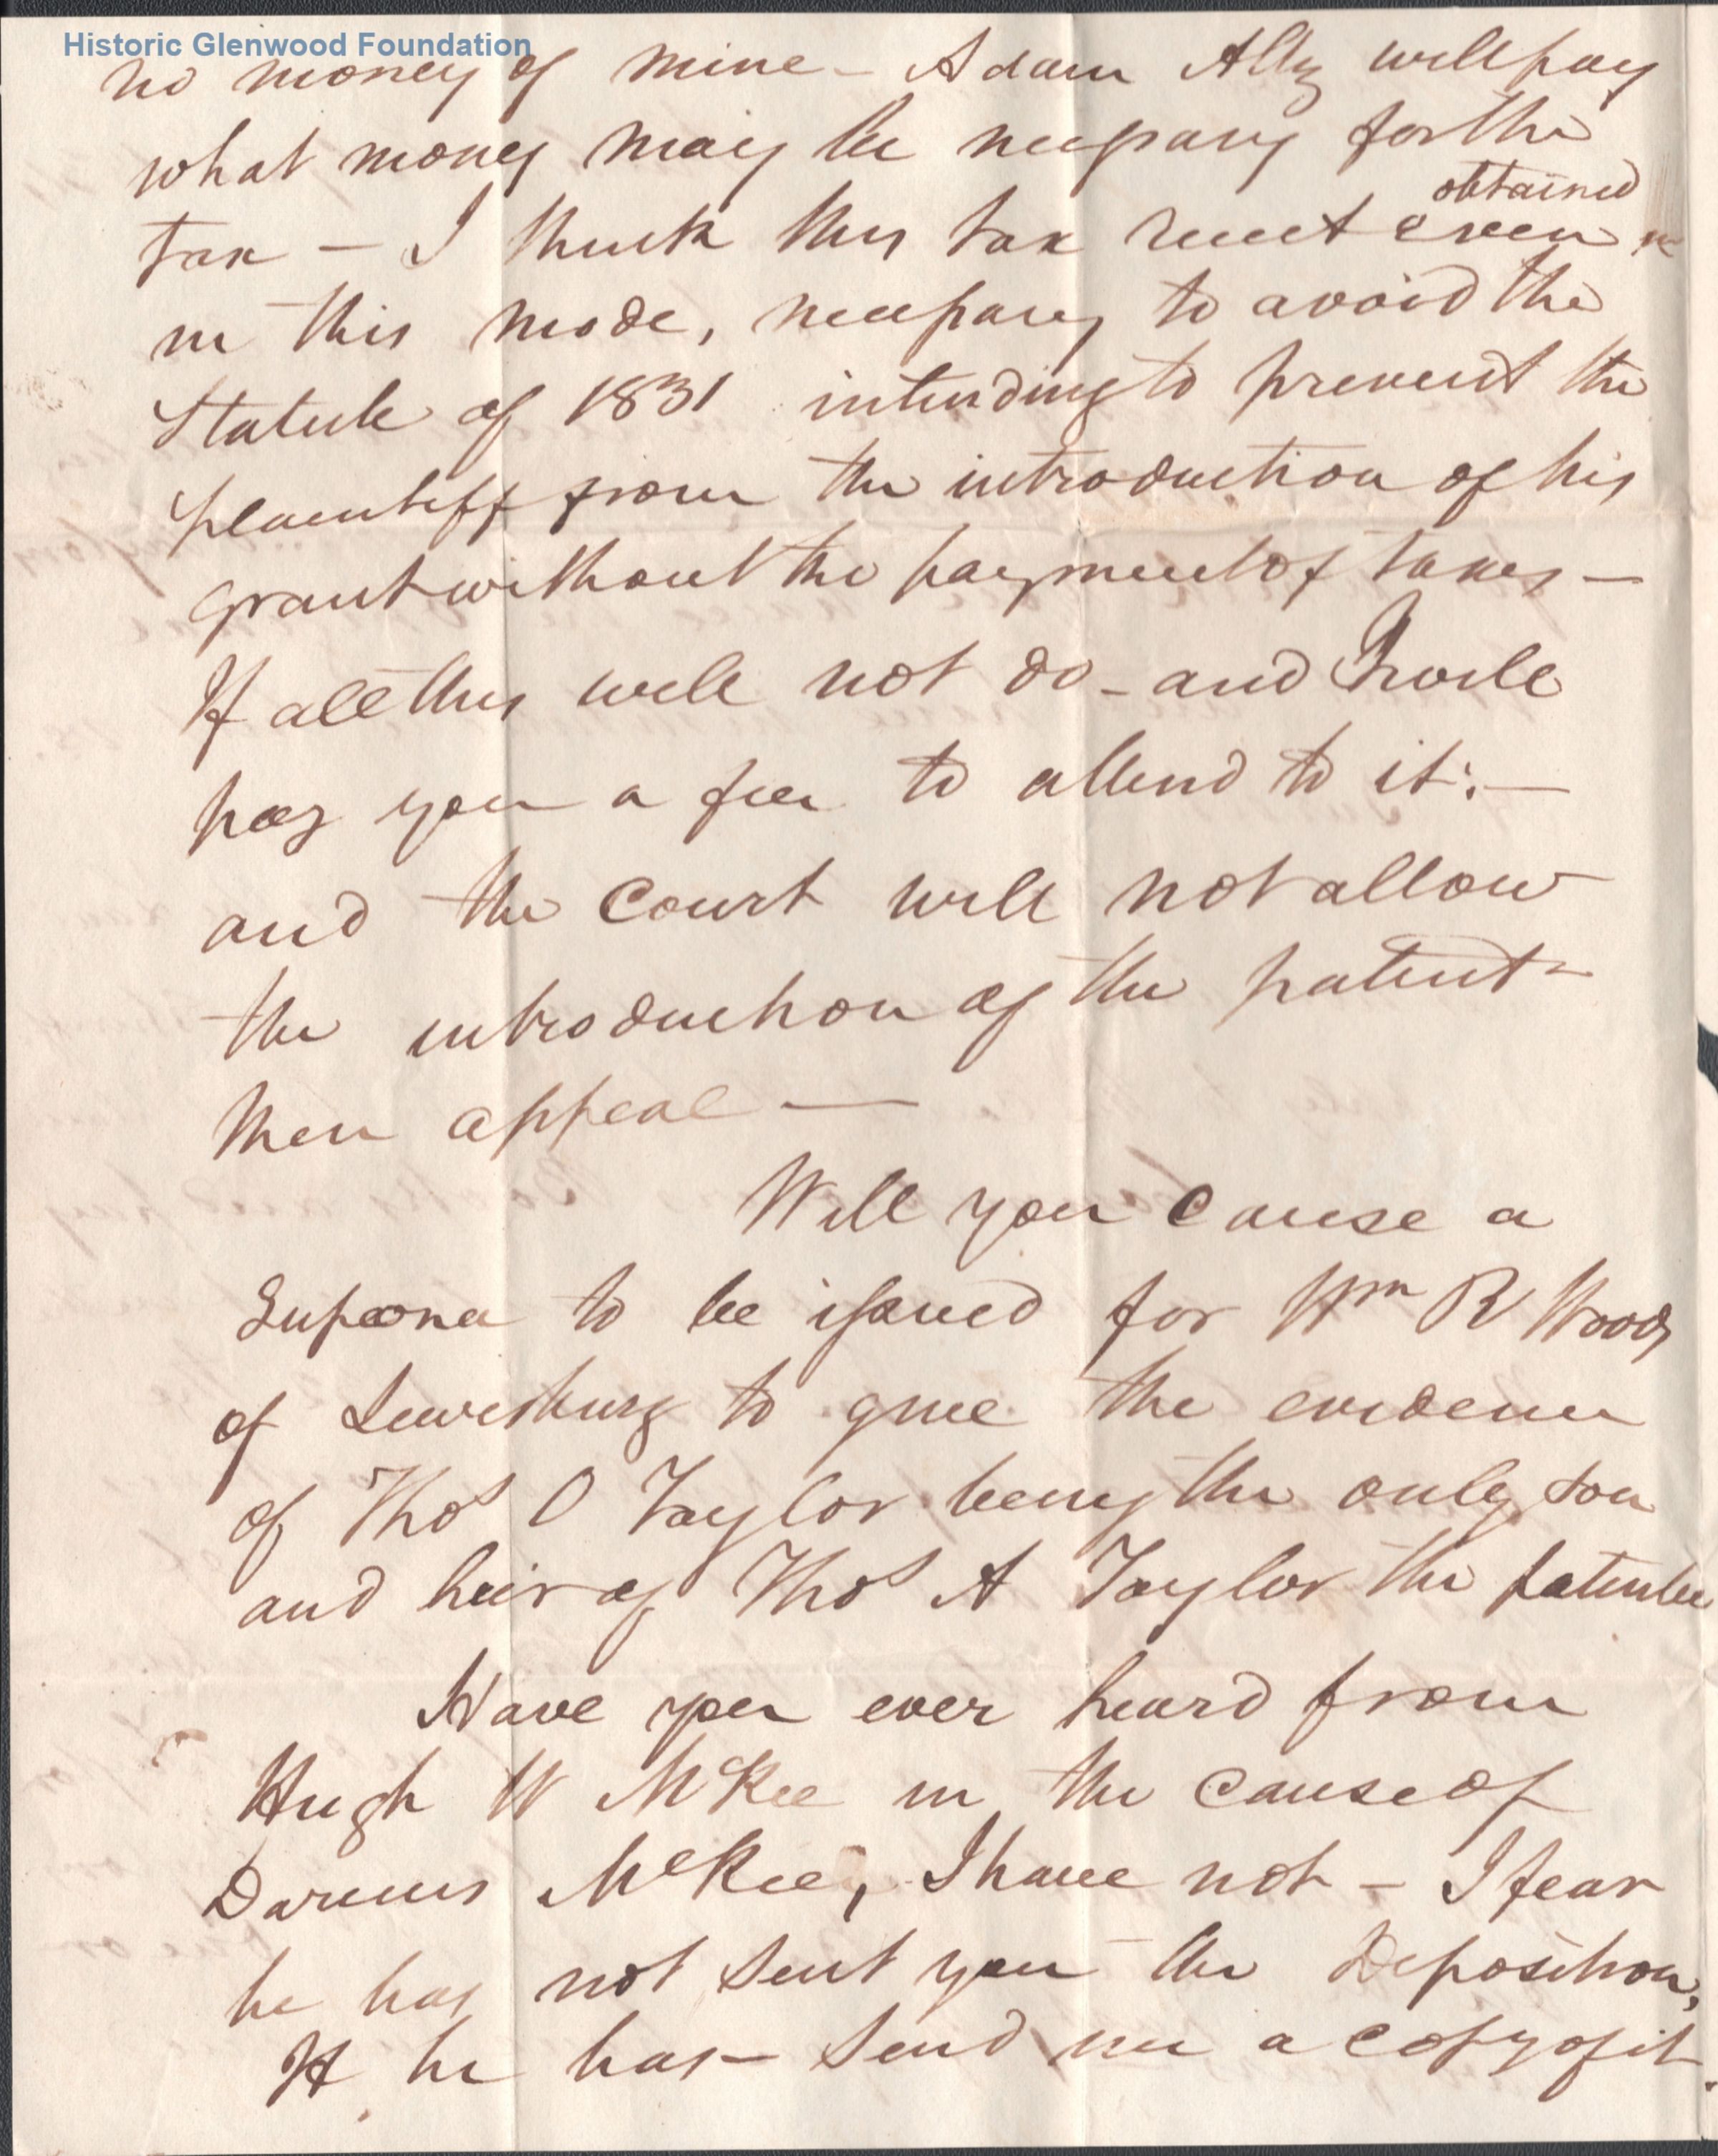 Historic Glenwood Foundation
no money of mine - Adam Ally will pay
what money may be necessary for the
obtained
tax - I think this tax receit even
in this mode, necessary to avoid the
Statute of 1831 intending to prevent the
plaintiff from the introduction of his
grant without the payment of taxes -
If all this will not do - and I will
pay you a fee to attend to it: -
and the Court will not allow
the introduction of the patent -
then appeal -
Will you cause a
Supoena to be issued for Wm R Woods
of Lewisburg to give the evidence
of Thos O Taylor being the only son
and heir of Thos A Taylor the patentee
Have you ever heard from
Hugh W McKee in the cause of
Darneus McKee, I have not - I fear
he has not sent you the Deposition,
If he has - Send me a copy of it.